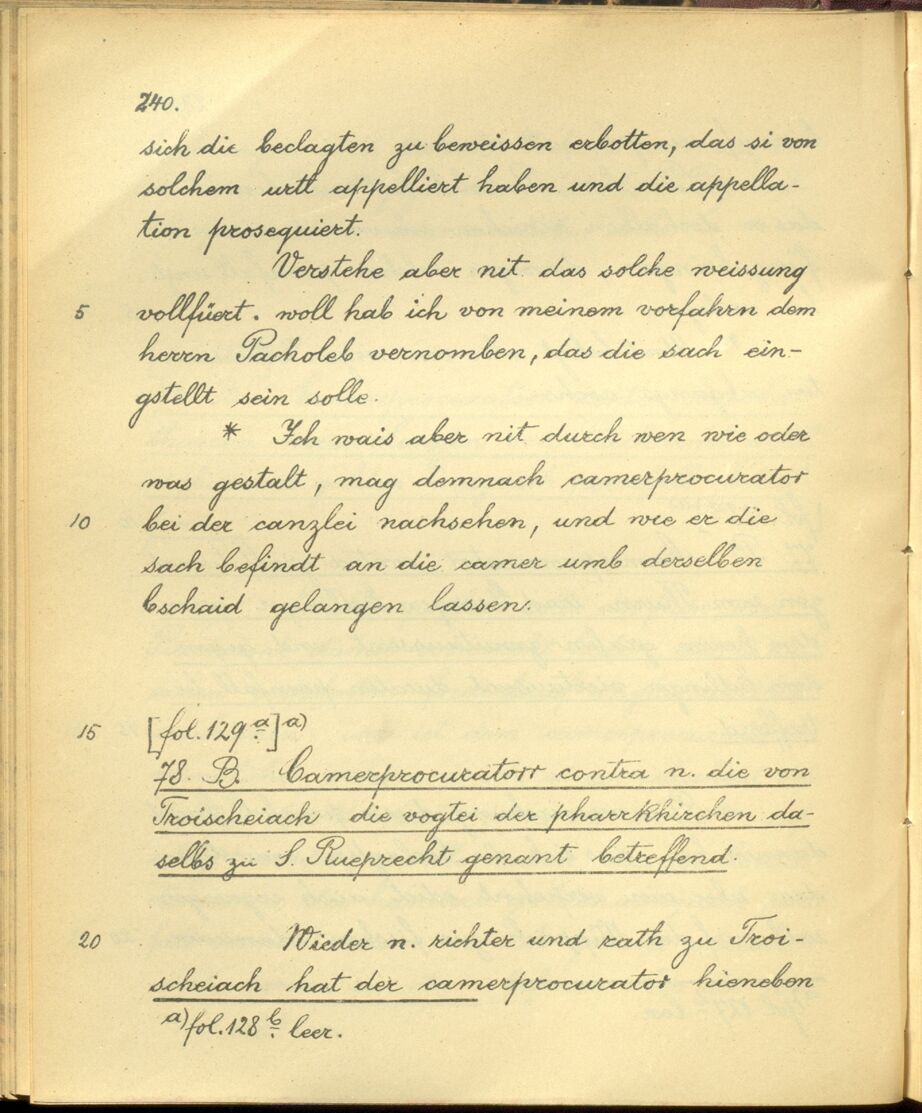 240.
sich die beclagten zu beweissen erbotten, das si von
solchem urtl appelliert haben und die appella-
tion prosequiert.
Verstehe aber nit das solche weissung
5 vollfüert. woll hab ich von meinem vorfahrn dem
herrn Pacholeb vernomben, das die sach ein-
gstellt sein solle.
* Ich wais aber nit durch wen wie oder
was gestalt, mag demnach camerprocurator
10 bei der canzlei nachsehen, und wie er die
sach befindt an die camer umb derselben
bschaid gelangen lassen.
15 [fol. 129 a] a)
78. B. Camerprocuratorr contra n. die von
Troischeiach die vogtei der pharrkhirchen da-
selbs zu S. Rueprecht genant betreffend.
20 Wieder n. richter und rath zu Troi-
scheiach hat der camerprocurator hieneben
a) fol. 128 b leer.